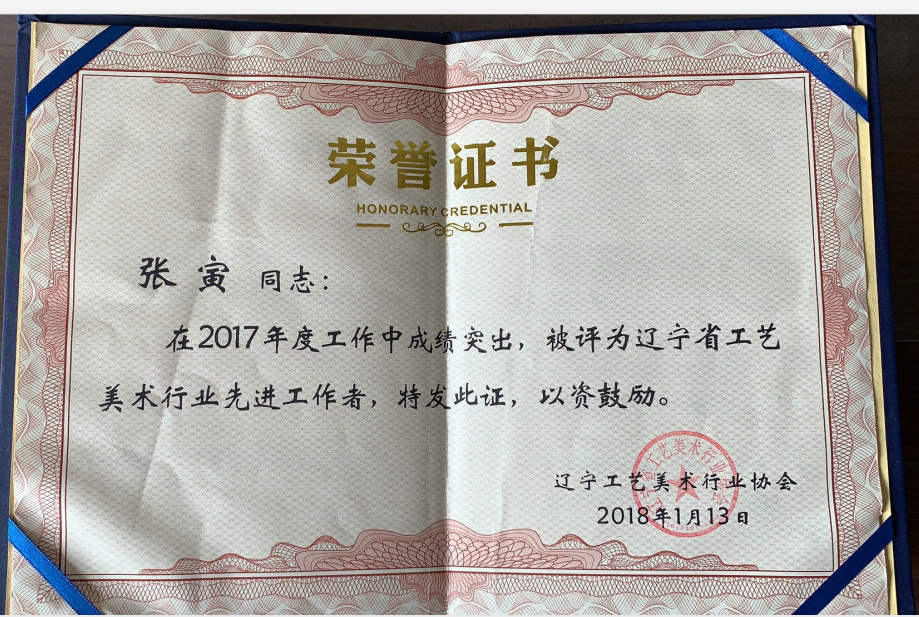 荣誉证书
HONORARY CREDENTIAL
张寅 同志：
在2017年度工作中成绩突出，被评为辽宁省工艺
美术行业先进工作者，特发此证，以资鼓励。
辽宁工艺美术行业协会
2018年1月13日